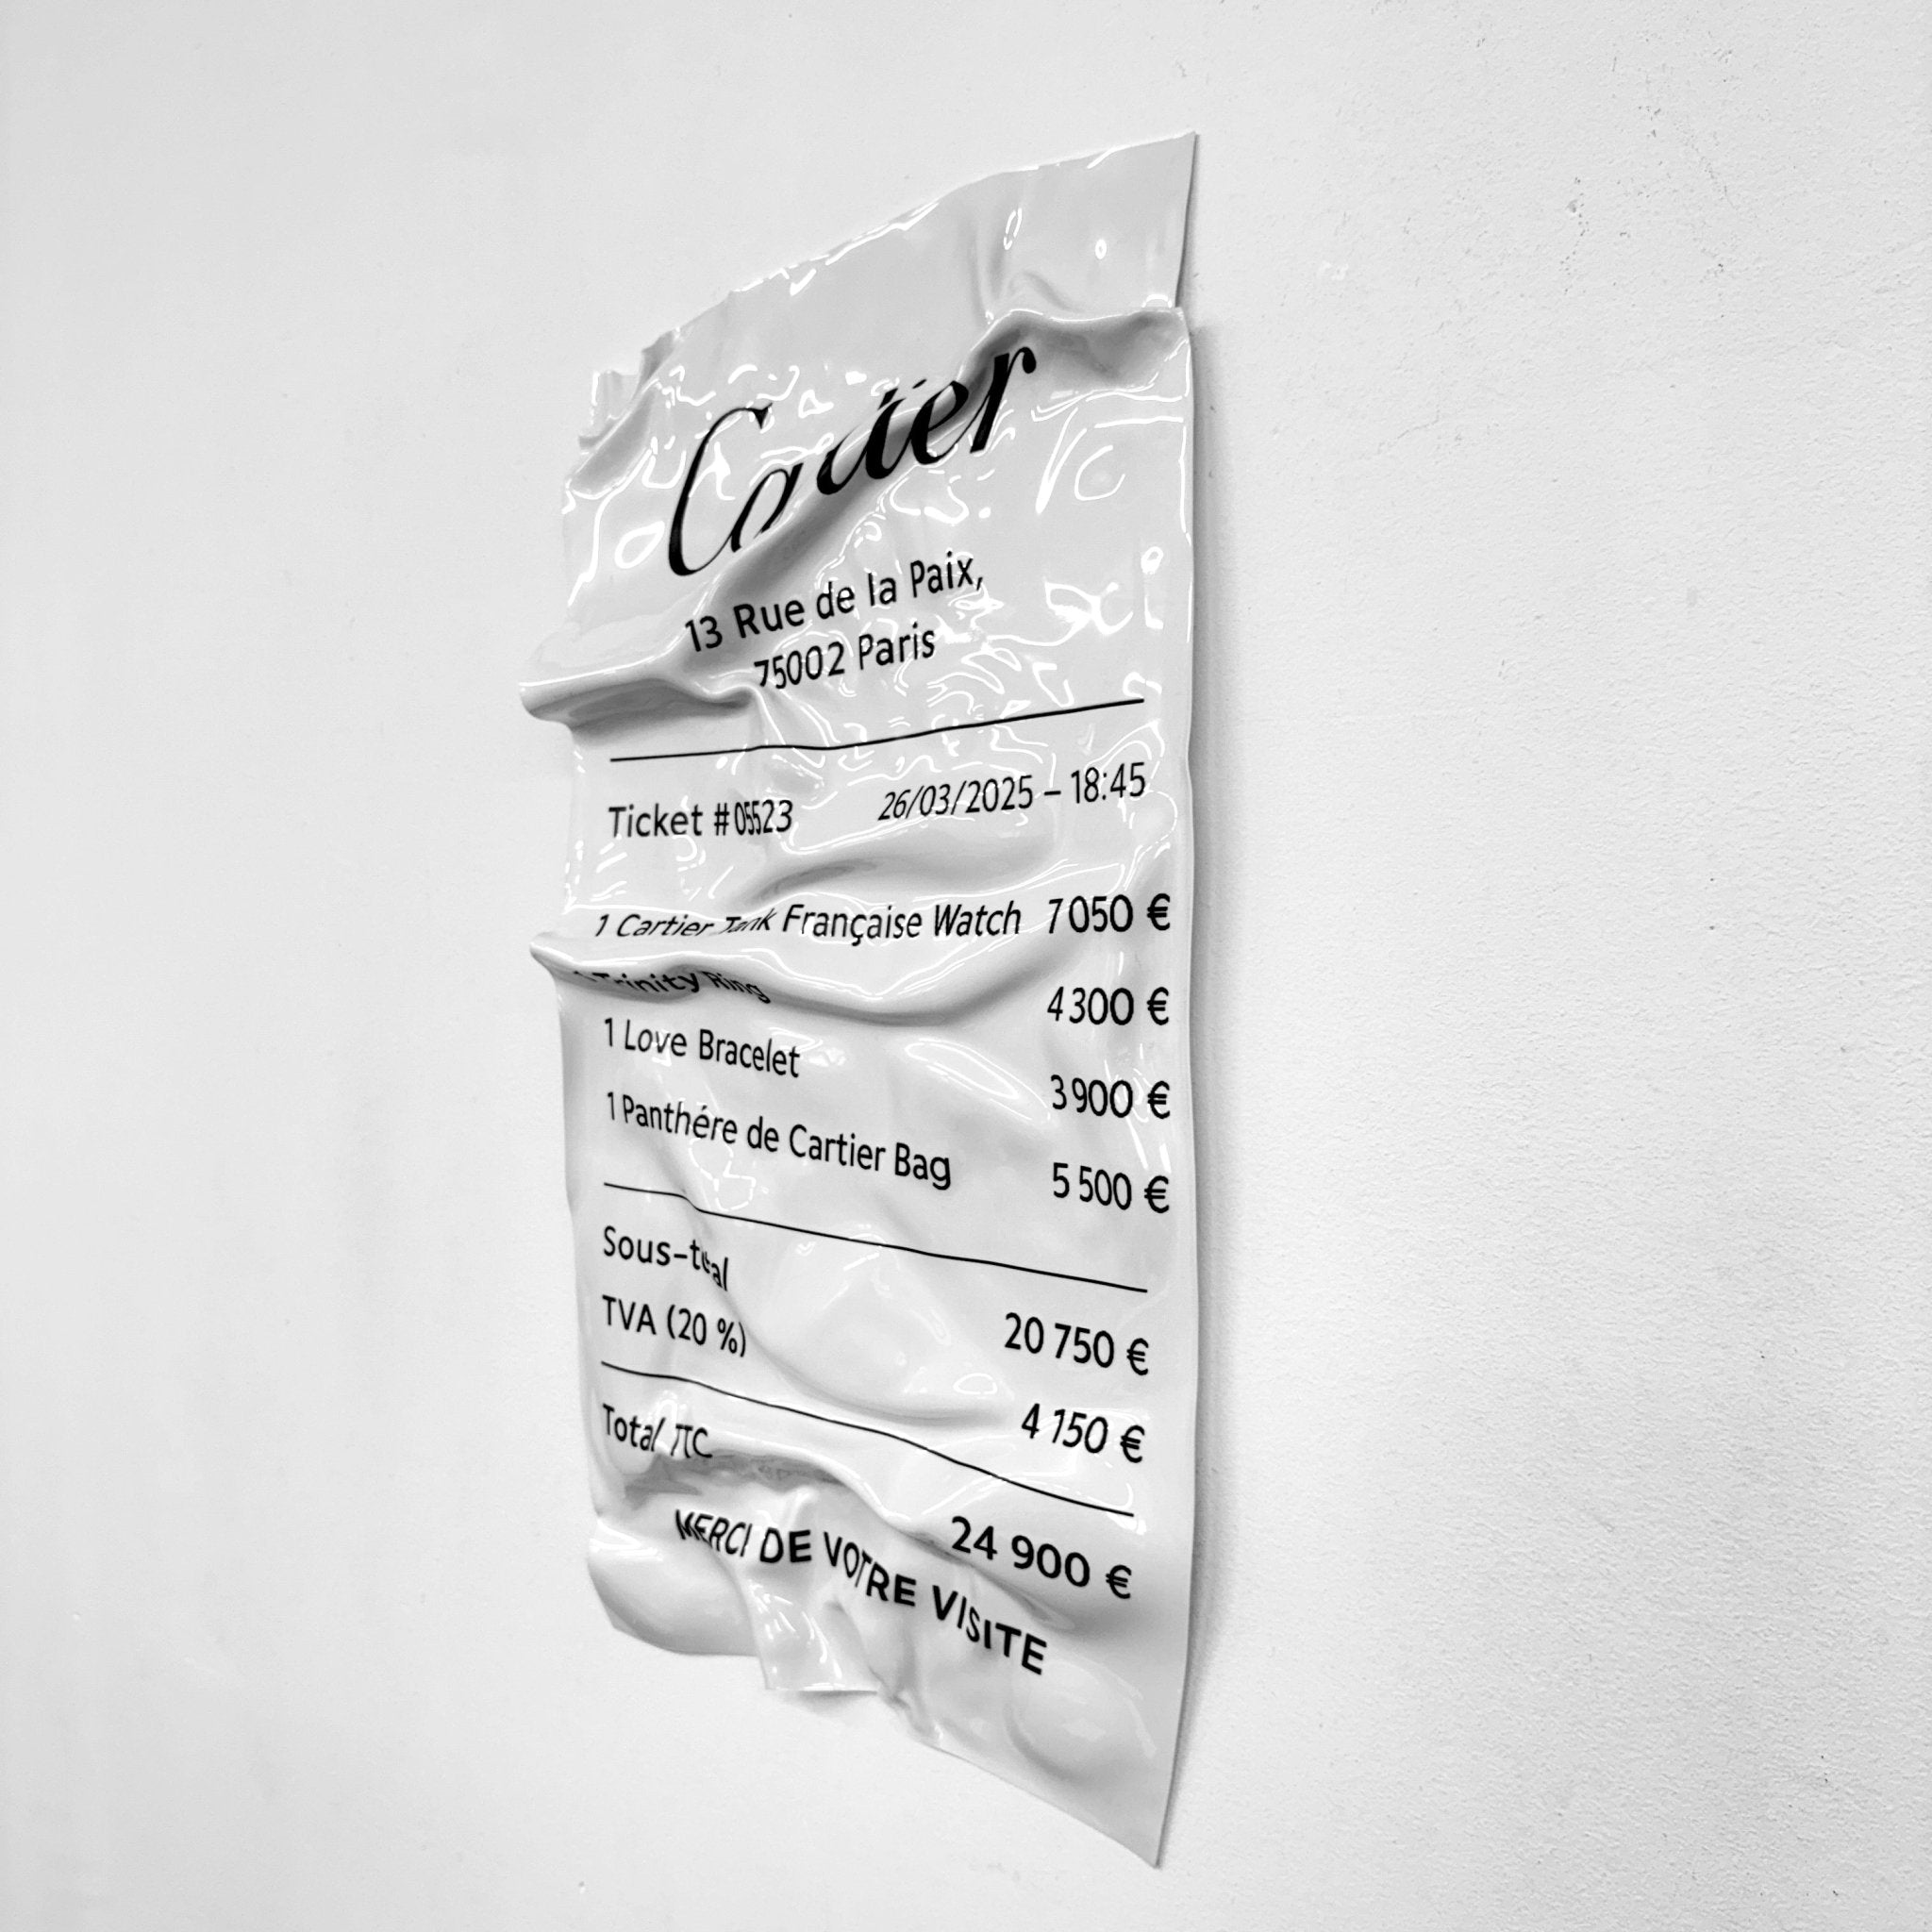 Cartier
13 Rue de la Paix,
75002 Paris
Ticket #05523 26/03/2025 – 18:45
1 Cartier Tank Française Watch 7 050 €
1 Trinity Ring 4 300 €
1 Love Bracelet 3 900 €
1 Panthére de Cartier Bag 5 500 €
Sous-total 20 750 €
TVA (20 %) 4 150 €
Total TTC 24 900 €
MERCI DE VOTRE VISITE